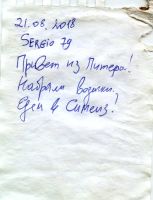 21.08.2018
SERGIO 79
Привет из Питера!
Набрали водички.
Едем в Симеиз!